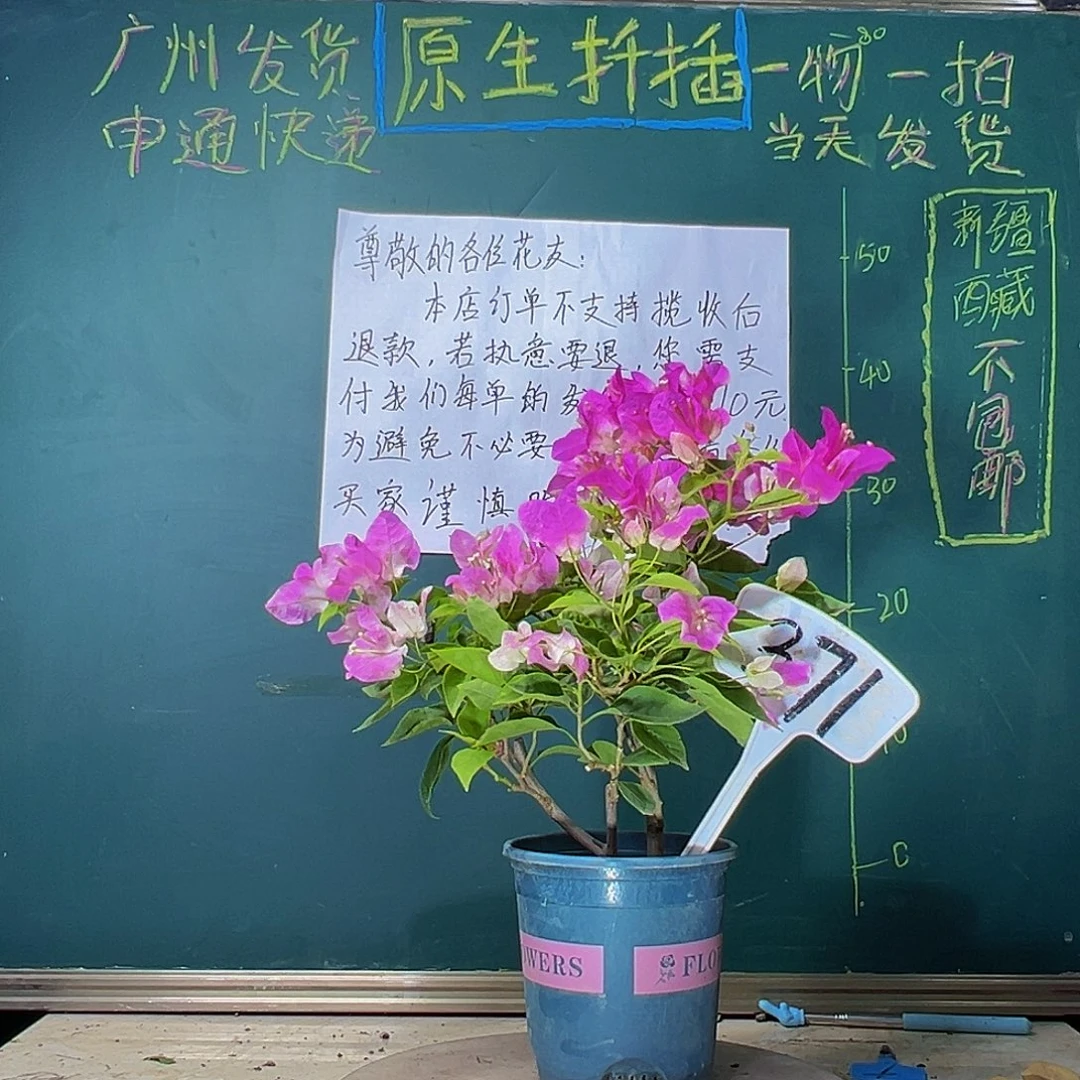 广州发货
申通快递
原生扦插
一物一拍
当天发货
新疆
西藏
不包邮
尊敬的各位花友：
本店订单不支持揽收后
退款，若执意要退，您需支
付我们每单的发 10元
为避免不必要
买家谨慎
50
40
30
20
10
0
371
OWERS
FLO